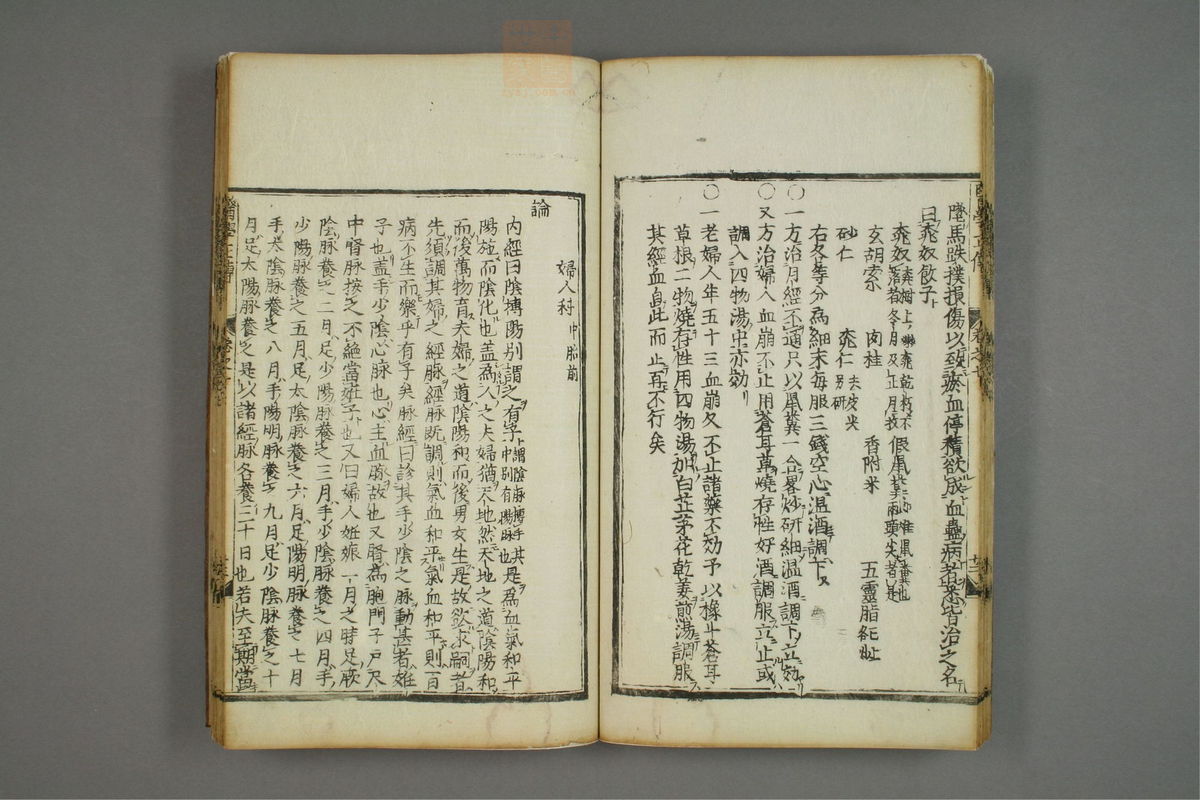 墮馬跌撲損傷以致瘀血停積欲成血蠱病者並皆治之名
曰桃奴飲子
桃奴 假鼠糞
玄胡索 肉桂 香附米 五靈脂
砂仁 桃仁 去皮尖 另研
右各等分為細末每服三錢空心溫酒調下
〇一方治月經不通只以鼠糞一合畧炒研細溫酒調下立効
〇又方治婦人血崩不止用蒼耳草燒存性好酒調服立止或
調入四物湯中亦効
〇一老婦人年五十三血崩久不止諸藥不効予以橡斗蒼耳
草根二物燒存性用四物湯加白芷茅花乾姜煎湯調服
其經血自此而止再不行矣
婦人科 中 胎前
論
內經曰陰搏陽別謂之有子 謂陰脉搏手其中別有陽脉也 是為血氣和平
陽施而陰化也盖為人之夫婦猶天地然天地之道陰陽和
而後萬物育夫婦之道陰陽和而後男女生是故欲求嗣者
先須調其婦之經脉經脉既調則氣血和平氣血和平則百
病不生而樂乎有子矣脉經曰診其手少陰之脉動甚者姙
子也盖手少陰心脉也心主血脉故也又腎為胞門子戶尺
中腎脉按之不絕當姙子也又曰婦人姙娠一月之時足厥
陰脉養之二月足少陽脉養之三月手少陰脉養之四月手
少陽脉養之五月足太陰脉養之六月足陽明脉養之七月
手太陰脉養之八月手陽明脉養之九月足少陰脉養之十
月足太陽脉養之是以諸經脉各養三十日也若夫至期當